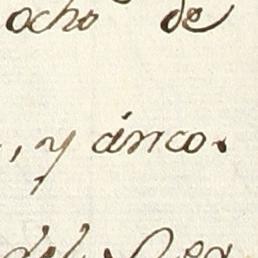 ocho de
, y cinco.
del Rey